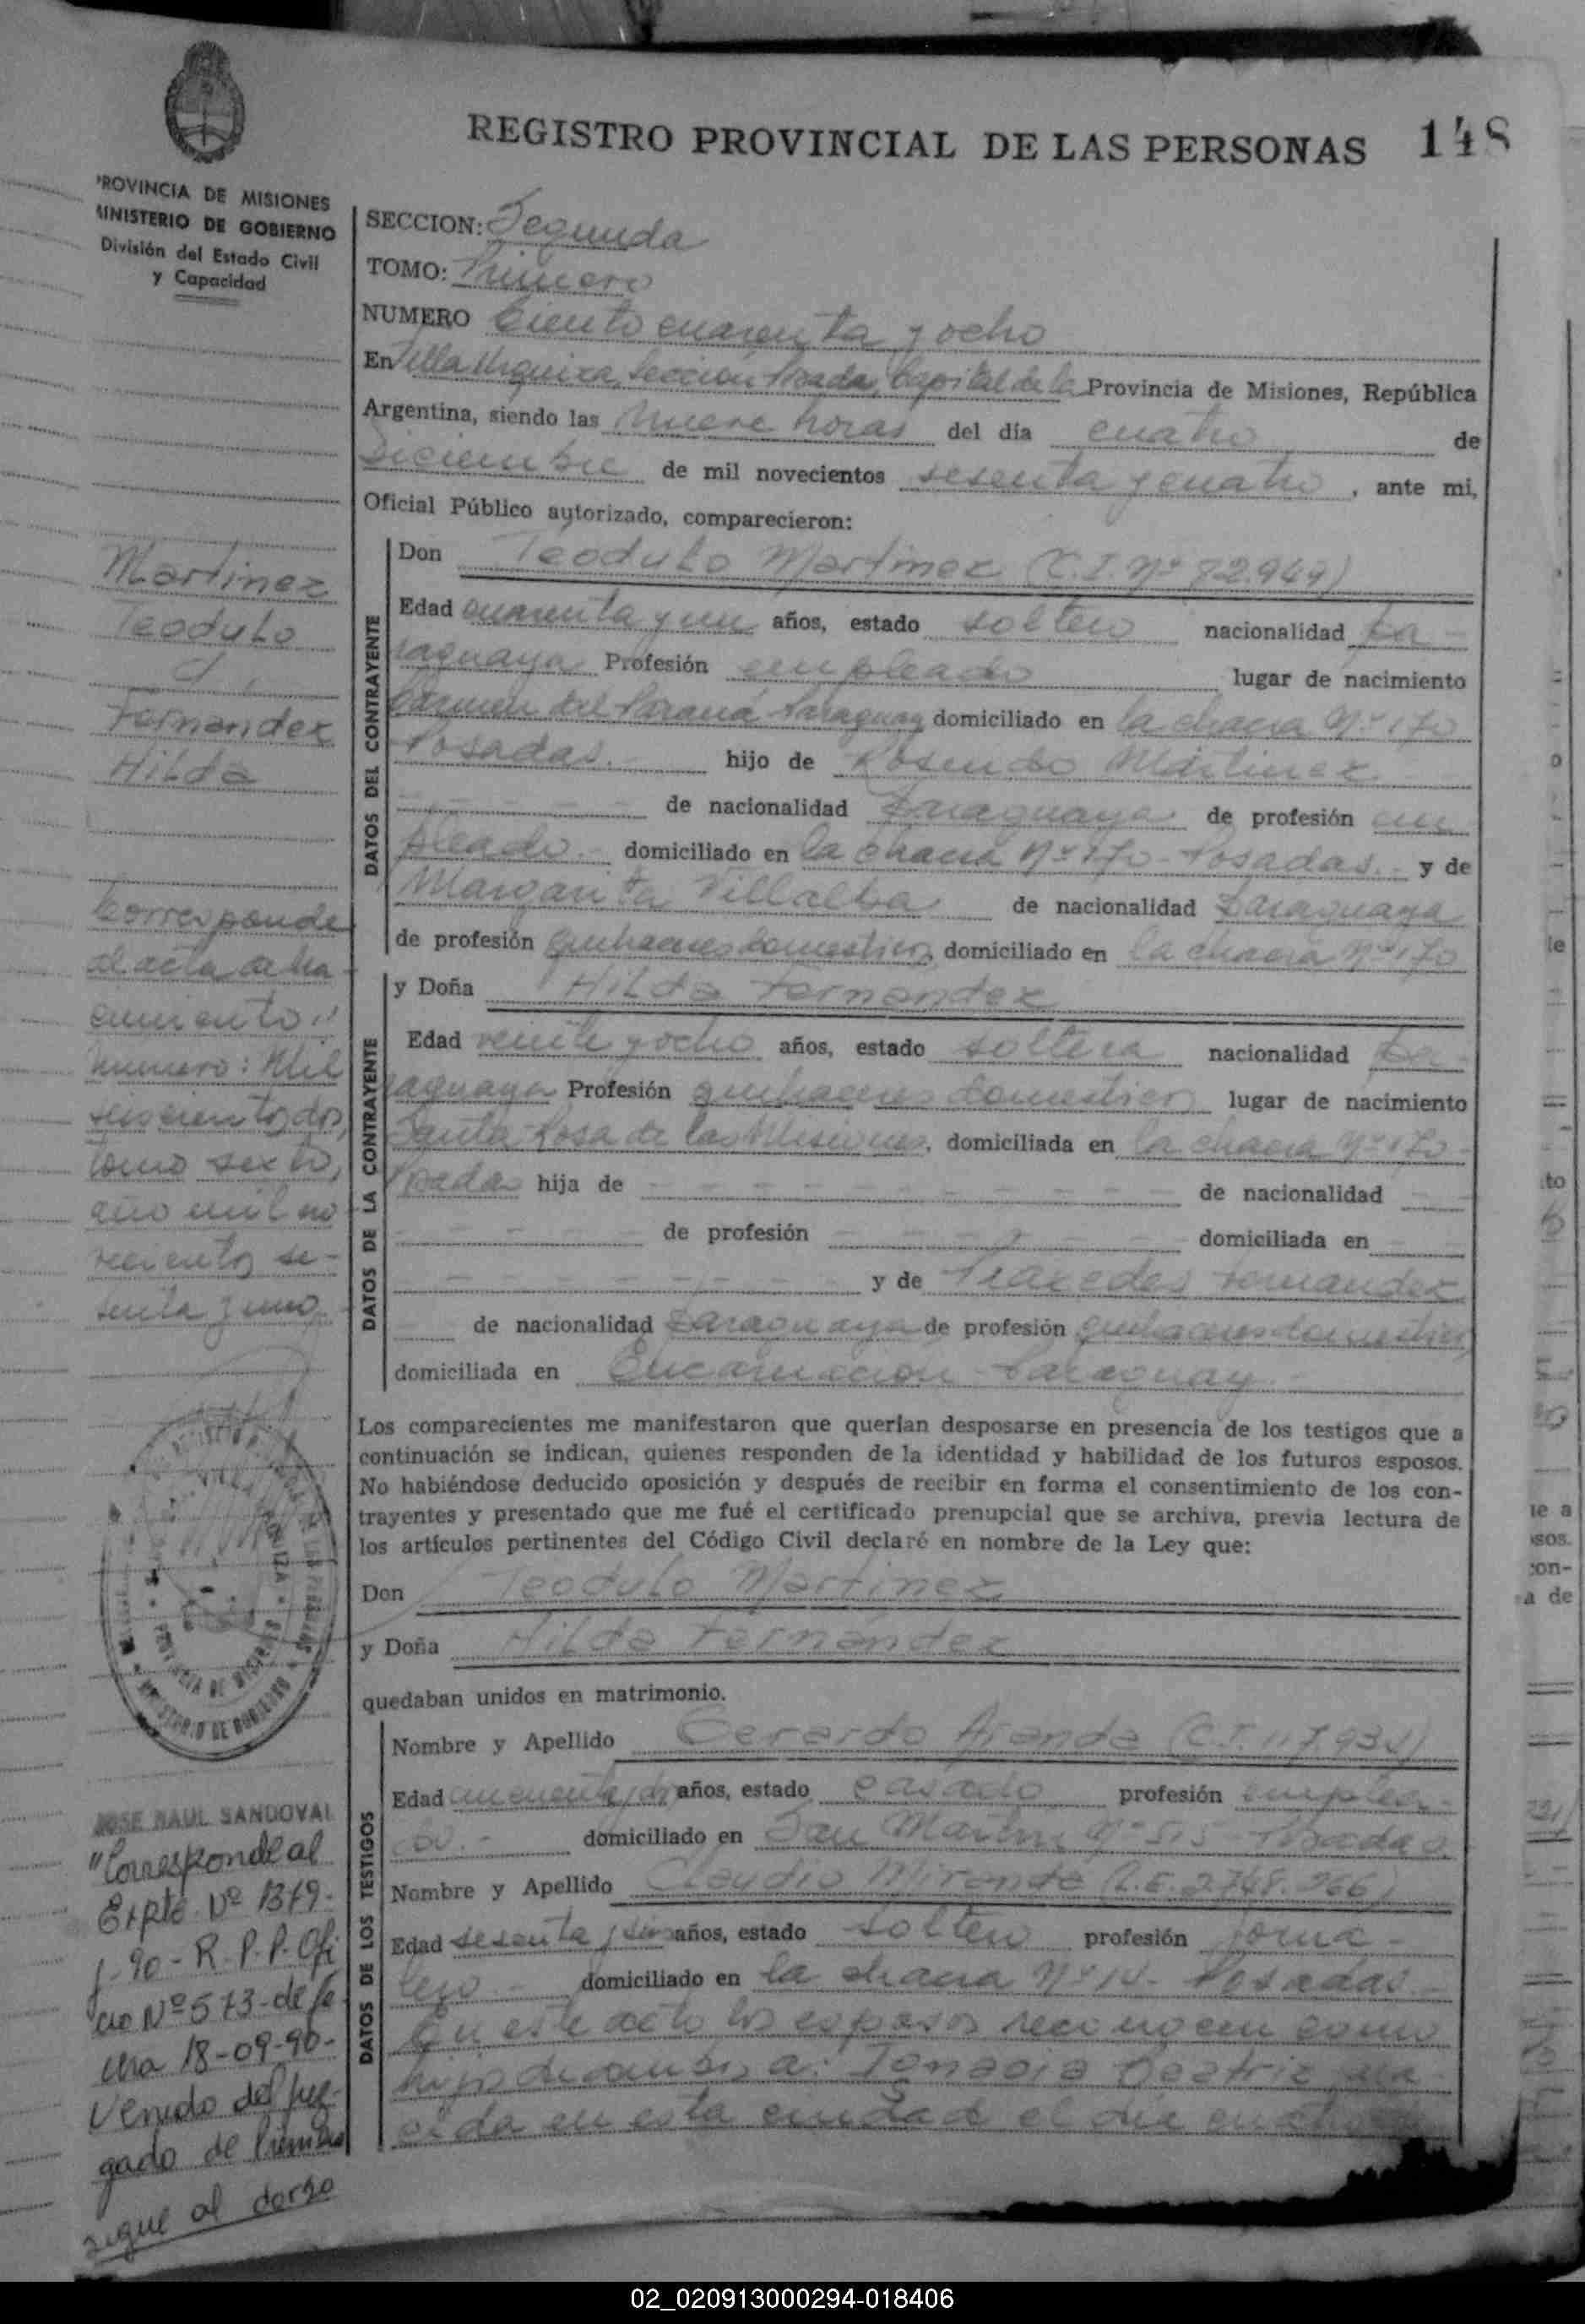 REGISTRO PROVINCIAL DE LAS PERSONAS 148
PROVINCIA DE MISIONES
MINISTERIO DE GOBIERNO
División del Estado Civil
y Capacidad
SECCION: Segunda
TOMO: Primero
NUMERO Ciento cuarenta y ocho
En Villa Urquiza, Sección Posadas, Capital de la Provincia de Misiones, República
Argentina, siendo las nueve horas del día cuatro de
Diciembre de mil novecientos sesenta y cuatro, ante mi,
Oficial Público autorizado, comparecieron:
Martinez
Teodulo
c/.
Fernandez
Hilda
DATOS DEL CONTRAYENTE
Don Teodulo Martinez (C.I. Nº 72.949)
Edad cuarenta y un años, estado soltero nacionalidad pa-
raguaya Profesión empleado lugar de nacimiento
Carmen del Paraná Paraguay domiciliado en la chacra Nº 170
Posadas.- hijo de Rosendo Martinez
de nacionalidad paraguaya de profesión em
pleado.- domiciliado en la chacra Nº 170 - Posadas.- y de
Margarita Villalba de nacionalidad paraguaya
de profesión quehaceres domesticos, domiciliado en la chacra Nº 170
Corresponde
al acta de na-
cimiento"
número: Mil
seiscientos dos,
tomo sexto,
año mil no
vecientos se-
senta y uno
DATOS DE LA CONTRAYENTE
y Doña Hilda Fernandez
Edad veinte y ocho años, estado soltera nacionalidad pa-
raguaya Profesión quehaceres domesticos lugar de nacimiento
Santa Rosa de las Misiones, domiciliada en la chacra Nº 170 -
Posadas hija de - - - de nacionalidad - -
- - - de profesión - - - domiciliada en - -
- - - y de Praxedes Fernandez
de nacionalidad paraguaya de profesión quehaceres domesticos
domiciliada en Encarnación - Paraguay.-
Los comparecientes me manifestaron que querían desposarse en presencia de los testigos que a
continuación se indican, quienes responden de la identidad y habilidad de los futuros esposos.
No habiéndose deducido oposición y después de recibir en forma el consentimiento de los con-
trayentes y presentado que me fué el certificado prenupcial que se archiva, previa lectura de
los artículos pertinentes del Código Civil declaré en nombre de la Ley que:
Don Teodulo Martinez
y Doña Hilda Fernandez
quedaban unidos en matrimonio.
PROVINCIA DE MISIONES
MINISTERIO DE GOBIERNO
DATOS DE LOS TESTIGOS
Nombre y Apellido Gerardo Aranda (C.I. 117.934)
Edad cincuenta y dos años, estado casado profesión emplea-
do.- domiciliado en San Martin Nº 515 Posadas
Nombre y Apellido Claudio Miranda (L.E. 2.748.966)
Edad sesenta y años, estado soltero profesión jorna-
lero.- domiciliado en la chacra Nº Posadas
En este acto los esposos reconocen como
hijo de ambos a: Ignacia Beatriz, na-
cida en esta ciudad el día cuatro
JOSE RAUL SANDOVAL
"Corresponde al
Expte. Nº 1379-
90 - R.P.P. Ofi
cio Nº 573 - de fe
cha 18-09-90-
Venido del Juz-
gado de Primera
sigue al dorso
02_020913000294-018406